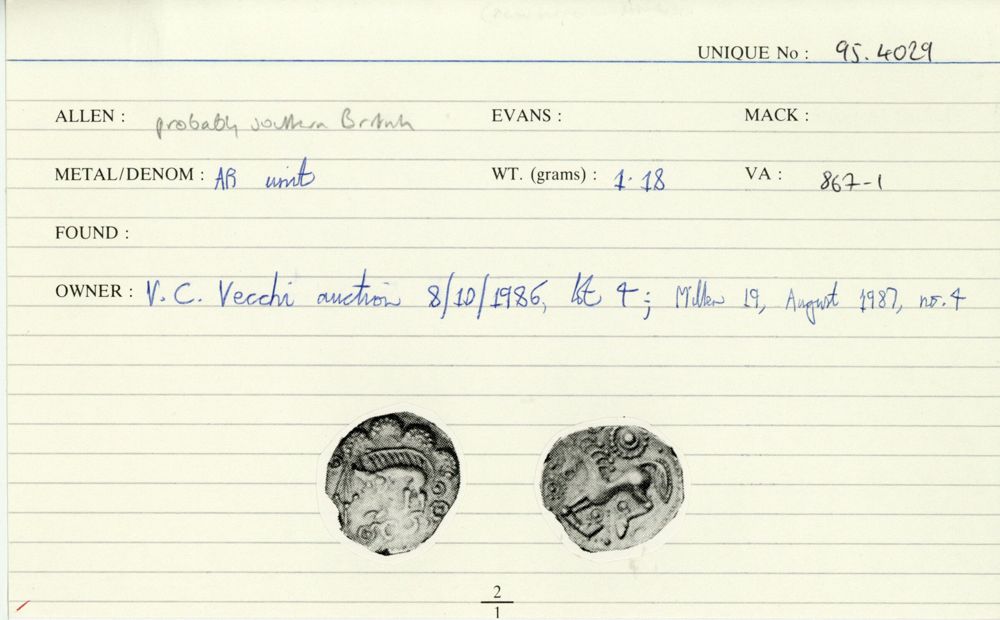 UNIQUE No : 95.4029
ALLEN : probably southern British EVANS : MACK :
METAL/DENOM : AR unit WT. (grams) : 1.18 VA : 867-1
FOUND :
OWNER : V. C. Vecchi auction 8/10/1986, lot 4; Miller 19, August 1987, no. 4
2
1